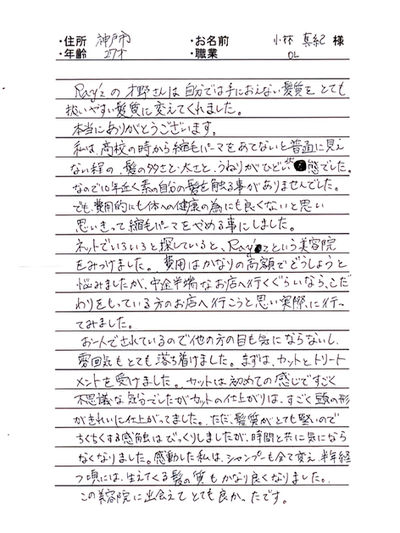 ・住所 神戸市 ・お名前 小林 真紀 様
・年齢 27才 ・職業 OL
Ray'zの才野さんは自分では手におえない髪質を とても
扱いやすい髪質に変えてくれました。
本当にありがとうございます。
私は、高校の時から縮毛パーマをあてないと普通に見え
ない程の、髪の多さと太さと、うねりがひどい状態でした。
なので10年近く素の自分の髪を触る事がありませんでした。
でも、費用的にも体への健康の為にも良くないと思い
思いきって縮毛パーマをやめる事にしました。
ネットでいろいろと探していると、Ray'zという美容院
をみつけました。費用はかなりの高額でどうしようと
悩みましたが、中途半端なお店へ行くぐらいなら、こだ
わりをもしている方のお店へ行こうと思い実際に行っ
てみました。
お一人でされているので他の方の目も気にならないし、
雰囲気もとても落ち着けました。まずは、カットとトリート
メントを受けました。カットは初めての感じですごく
不思議な気分でしたがカットの仕上がりは、すごく頭の形
がきれいに仕上がってました。ただ、髪質がとても堅いので
ちくちくする感触はびっくりしましたが、時間と共に気になら
なくなりました。感動した私は、シャンプーも全て変え、半年経
つ頃には、生えてくる髪の質もかなり良くなりました。
この美容院に出会えてとても良かったです。